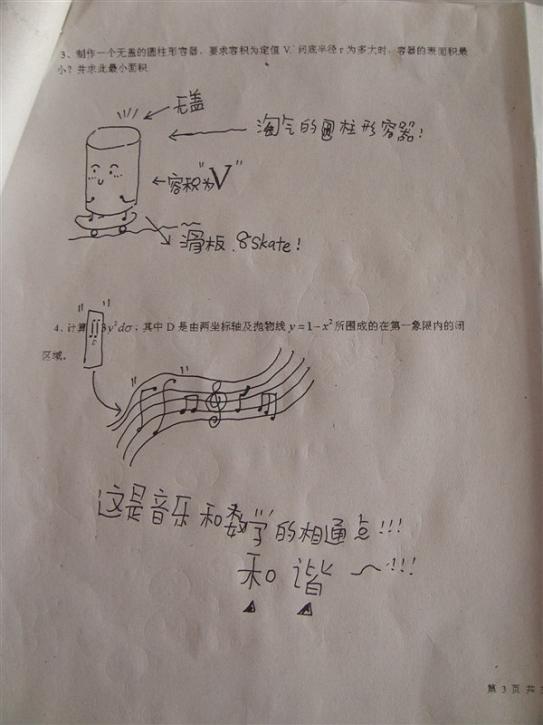 3、制作一个无盖的圆柱形容器，要求容积为定值 V，问底半径 r 为多大时，容器的表面积最
小？并求此最小面积
无盖
淘气的圆柱形容器！
容积为"V"
滑板 Skate！
4、计算∬3y²dσ，其中 D 是由两坐标轴及抛物线 y = 1 - x² 所围成的在第一象限内的闭
区域。
这是音乐和数学的相通点!!!
和谐～!!!
第 3 页 共